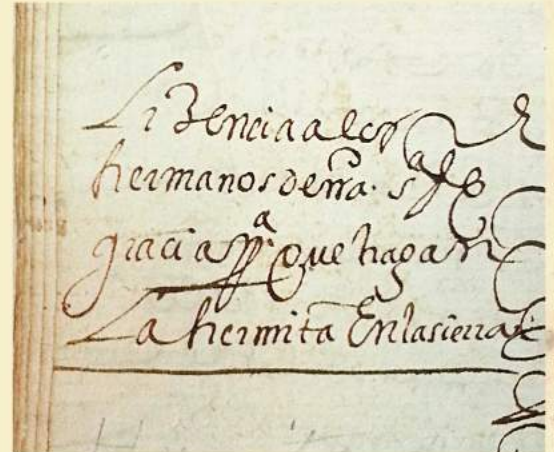 Lizencia a los
hermanos de nra. sª de
gracia ppª que hagan
La hermita En la sierra